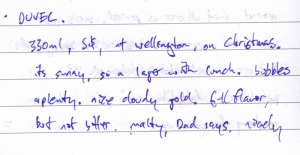 · DUVEL.
330ml, 5$, at wellington, on Christmas.
its sunny, so a lager with lunch. bubbles
aplenty. nice cloudy gold. full flavor,
but not bitter. malty, Dad says. nicely